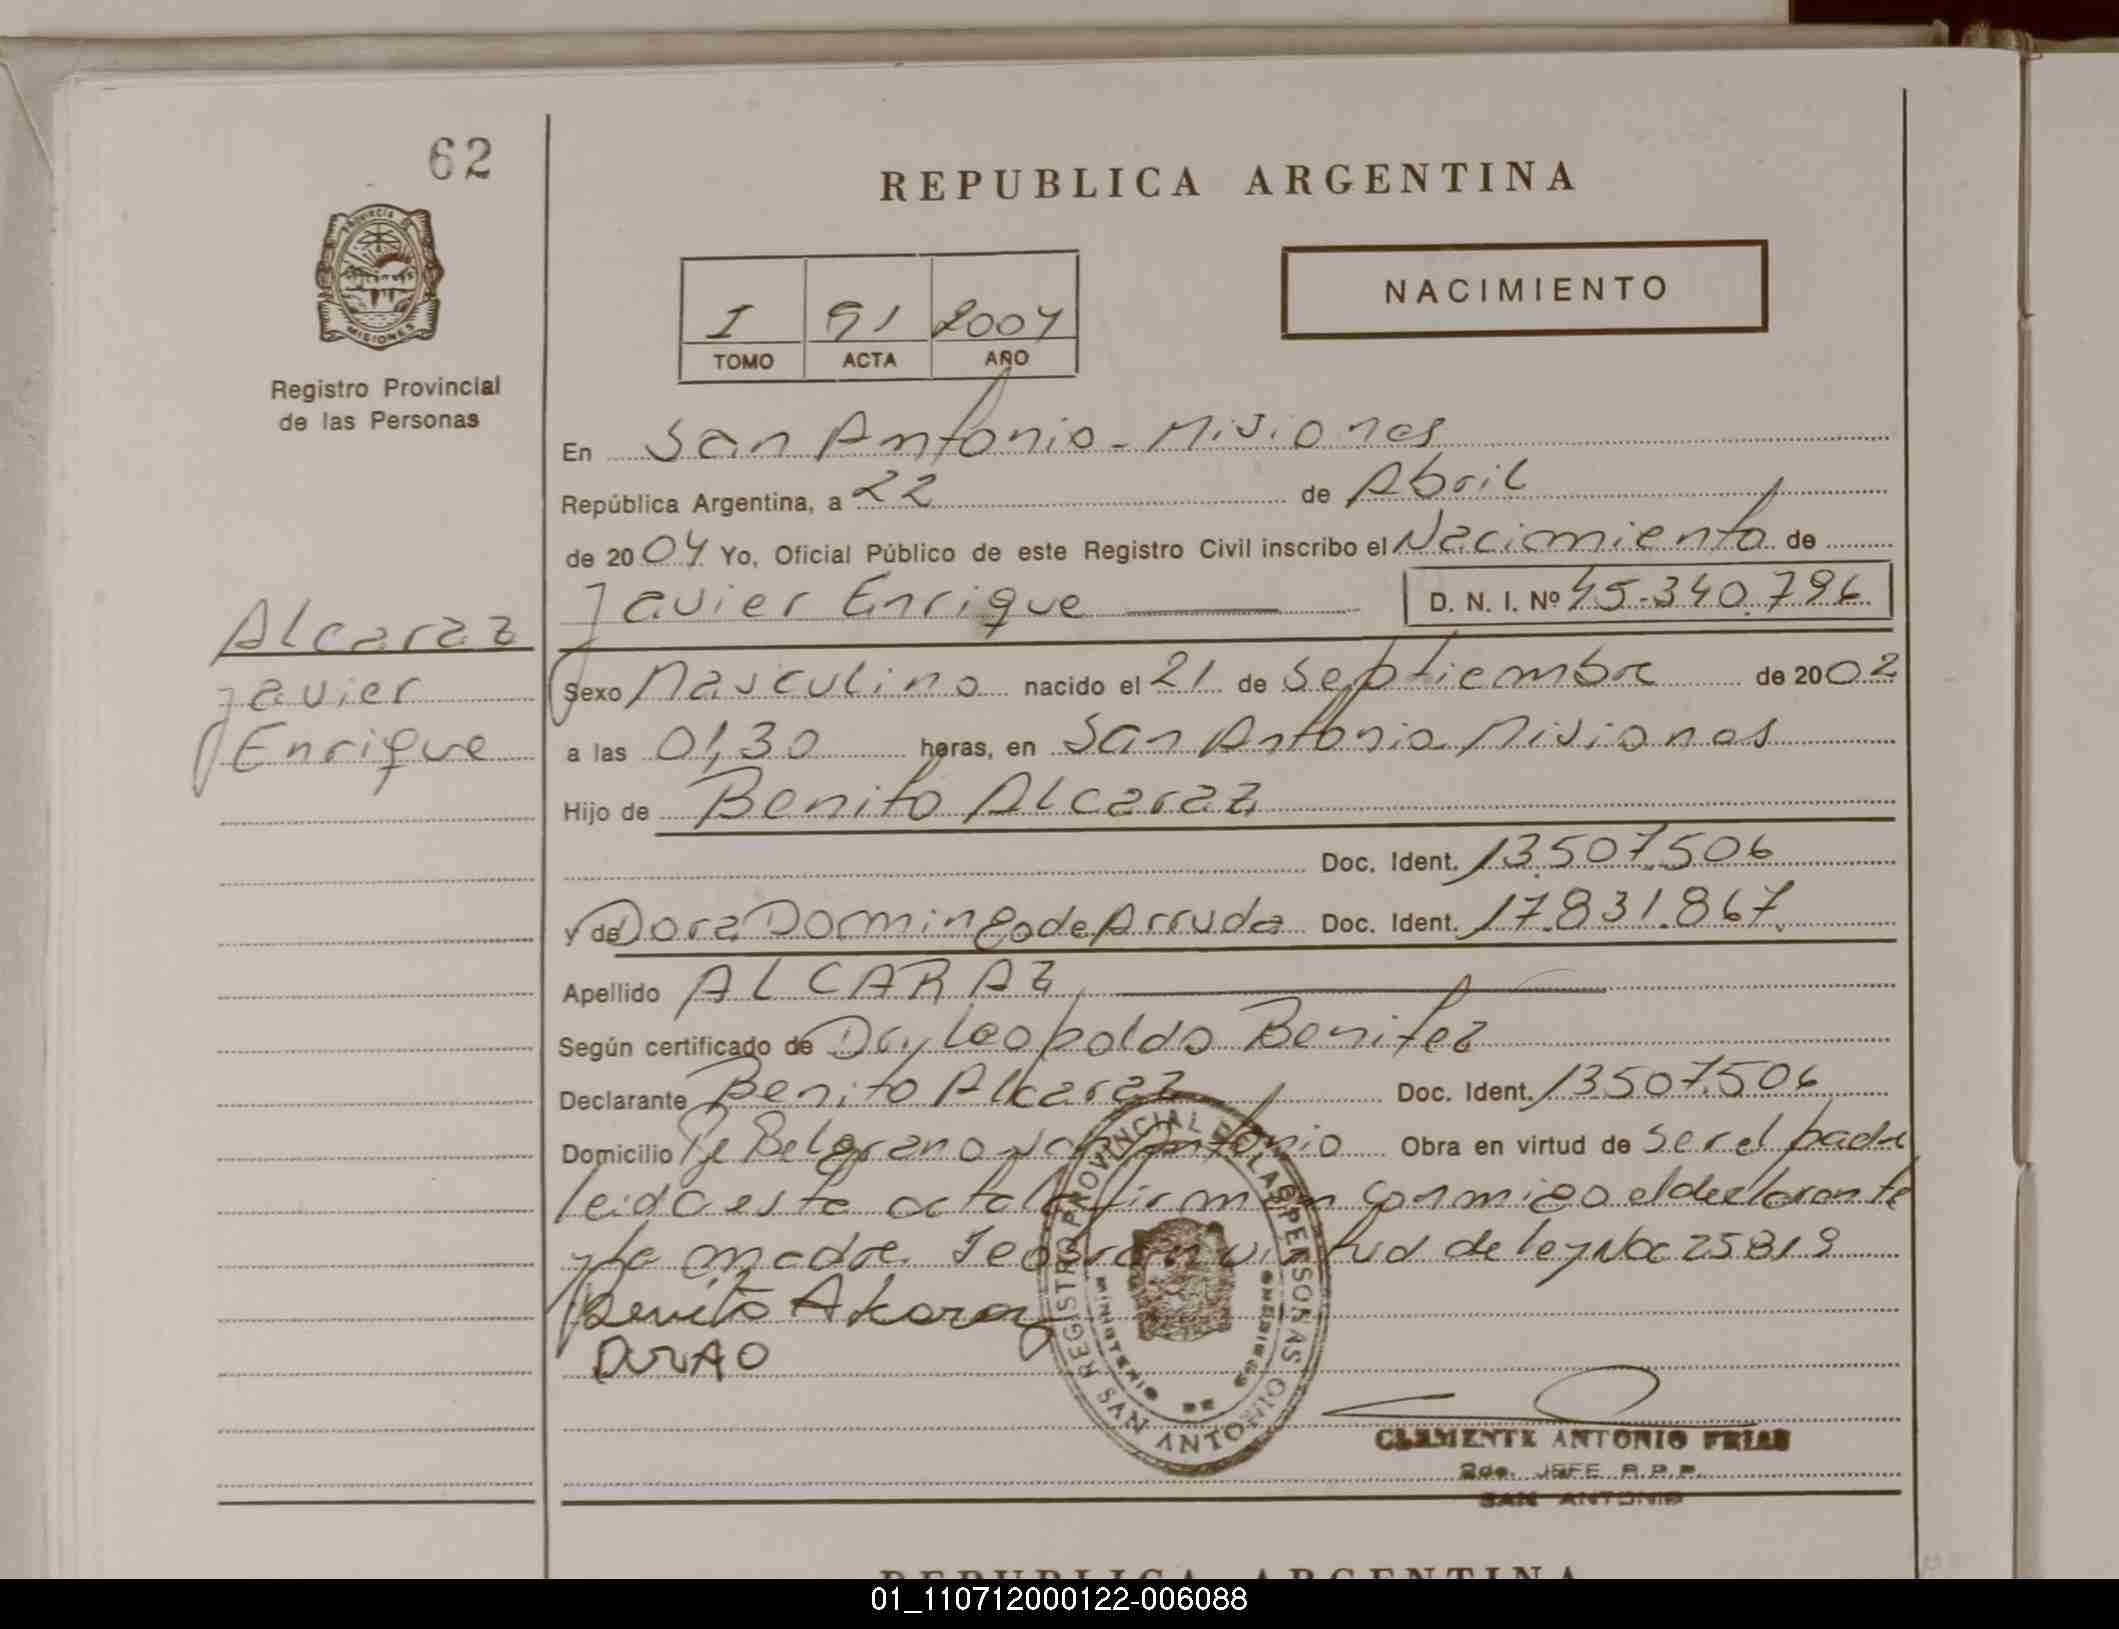 62
PROVINCIA DE
MISIONES
Registro Provincial
de las Personas
REPUBLICA ARGENTINA
I 91 2004
TOMO ACTA AÑO
NACIMIENTO
En San Antonio - Misiones
República Argentina, a 22 de Abril
de 2004 Yo, Oficial Público de este Registro Civil inscribo el Nacimiento de
Javier Enrique
D. N. I. Nº 45.340.796
Alcaraz
Javier
Enrique
Sexo Masculino nacido el 21 de Septiembre de 2002
a las 01,30 horas, en San Antonio Misiones
Hijo de Benito Alcaraz
Doc. Ident. 13.507.506
y de Dora Domingo de Arruda Doc. Ident. 17.831.867
Apellido ALCARAZ
Según certificado de Leopoldo Benitez
Declarante Benito Alcaraz Doc. Ident. 13507.506
Domicilio Belgrano San Antonio Obra en virtud de ser el padre
leida esta acta la firman conmigo el declarante
y la madre. Se virtud de ley 25819
Benito Alcaraz
REGISTRO PROVINCIAL DE LAS PERSONAS
MINISTERIO DE GOBIERNO
SAN ANTONIO
CLEMENTE ANTONIO FRIAS
2do. JEFE R.P.P.
SAN ANTONIO
REPUBLICA ARGENTINA
01_110712000122-006088